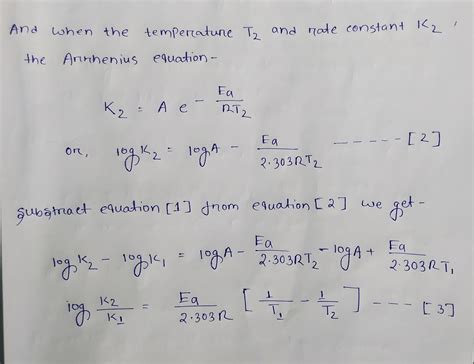 And when the temperature T₂ and rate constant K₂,
the Arrhenius equation-
K₂ = A e^(- Ea/RT₂)
or, log K₂ = log A - Ea/2.303RT₂ ----- [2]
Substract equation [1] from equation [2] we get-
log K₂ - log K₁ = log A - Ea/2.303RT₂ - log A + Ea/2.303RT₁
log K₂/K₁ = Ea/2.303R [1/T₁ - 1/T₂] --- [3]